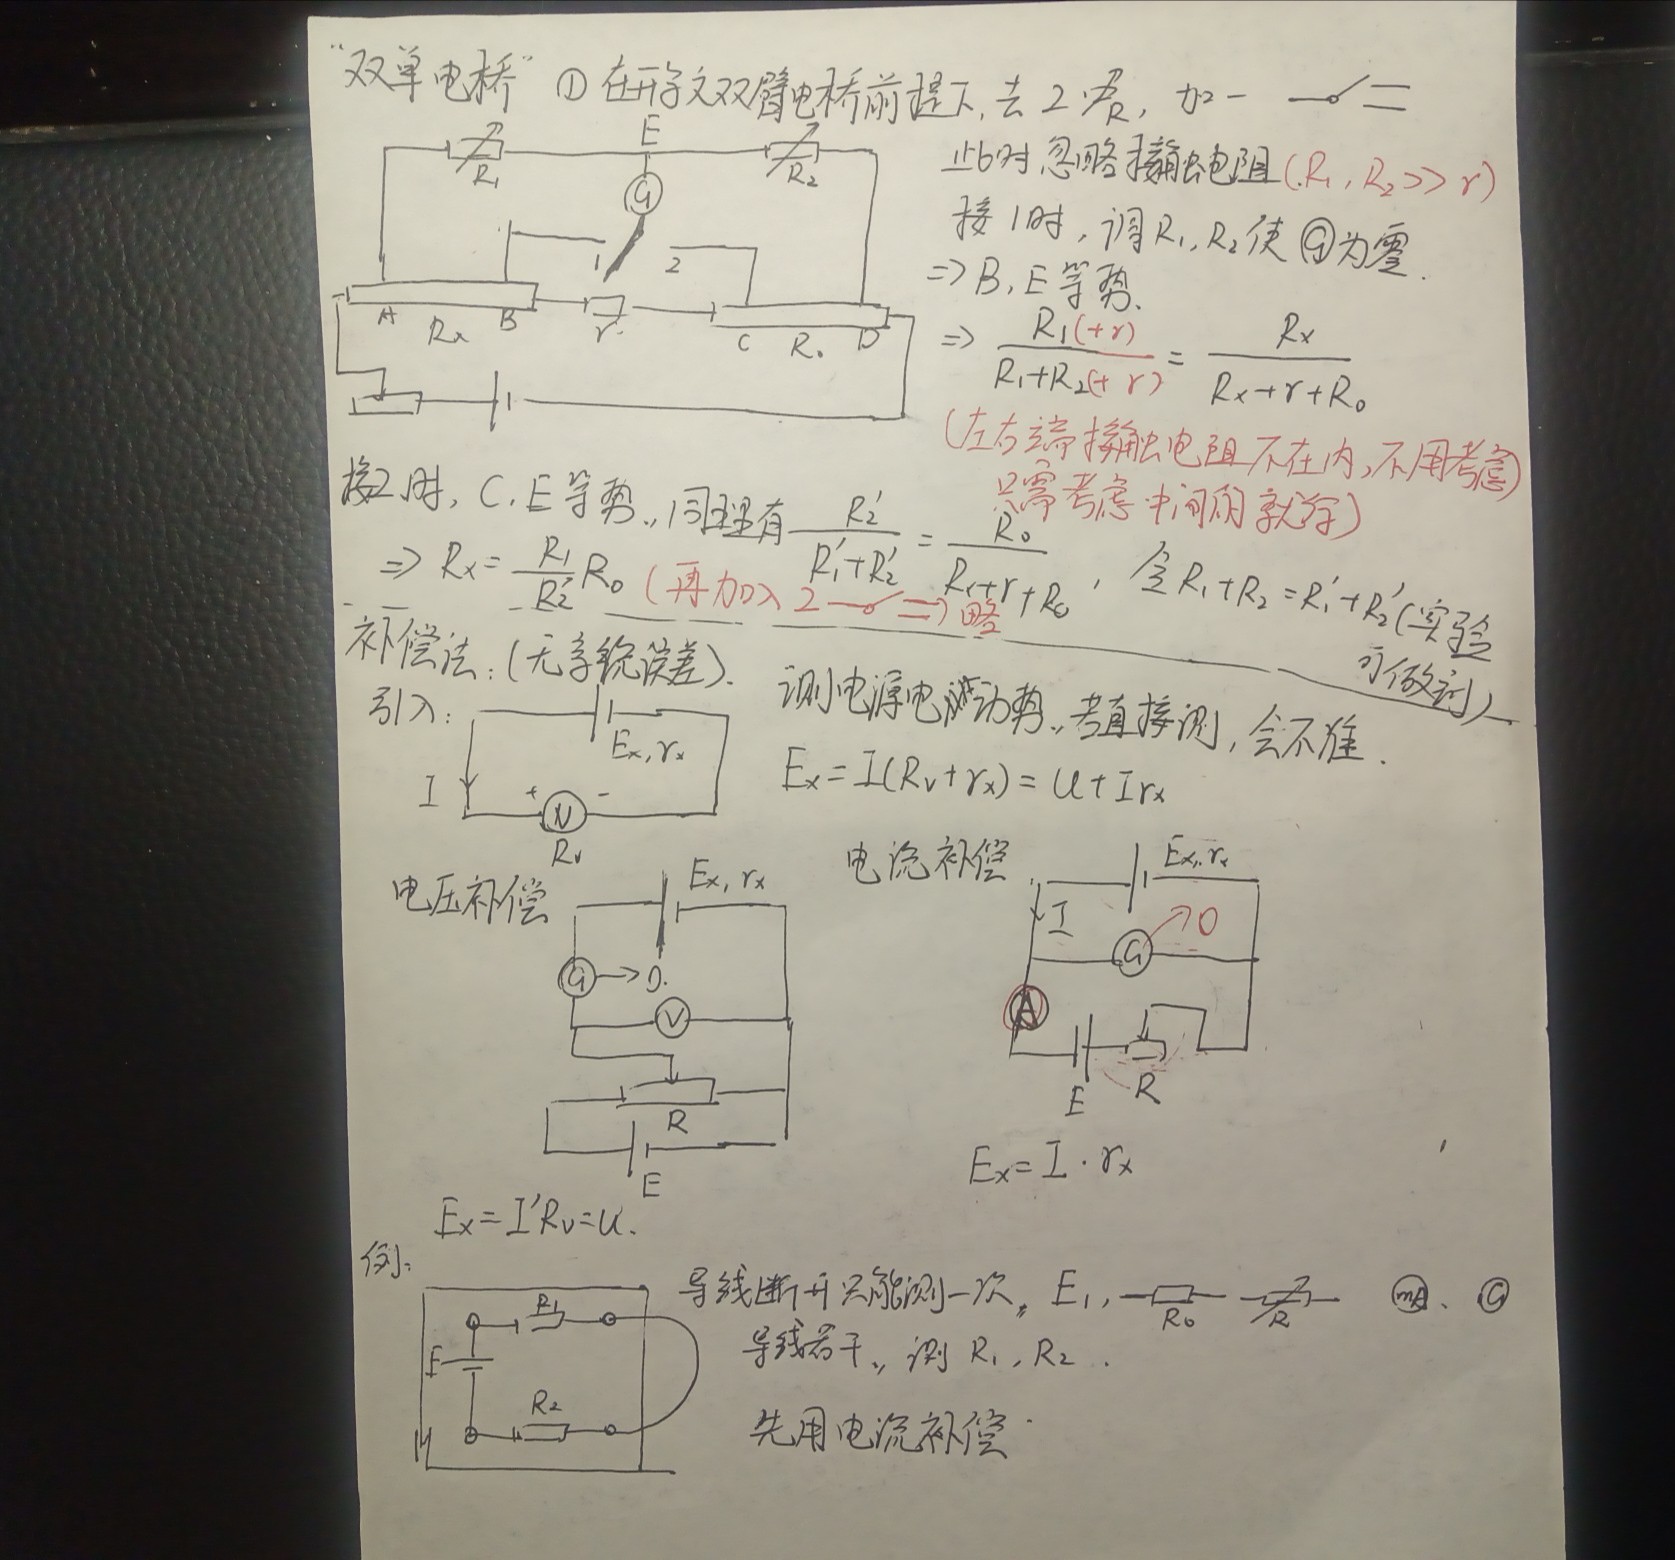 "双单电桥" ① 在开尔文双臂电桥前提下,去2 R,加一
R₁ E R₂
此时忽略接触电阻(R₁,R₂>>r)
G
接1时,调R₁,R₂使Ⓖ为零.
1 2
⇒B,E等势.
A Rx B r C R₀ D
⇒ R₁(+r)/(R₁+R₂(+r)) = Rx/(Rx+r+R₀)
(左右端接触电阻不在内,不用考虑)
只需考虑中间的就好)
接2时,C,E等势,同理有 R₂'/(R₁'+R₂') = R₀/(Rx+r+R₀),令R₁+R₂=R₁'+R₂'(实验
可做到)
⇒ Rx = R₁/R₂' R₀ (再加入2 ⇒)略
补偿法:(无系统误差).
引入:
Ex,rx
I
+ V -
Rv
测电源电动势,若直接测,会不准.
Ex=I(Rv+rx)=U+Irx
电压补偿
Ex,rx
G→0.
V
R
E
Ex=I'Rv=U.
电流补偿
Ex,rx
I
G→0
A
E R
Ex=I·rx
例:
R₁
E
R₂
导线断开只能测一次,E₁, R₀ R mA、G
导线若干,测R₁,R₂.
先用电流补偿.